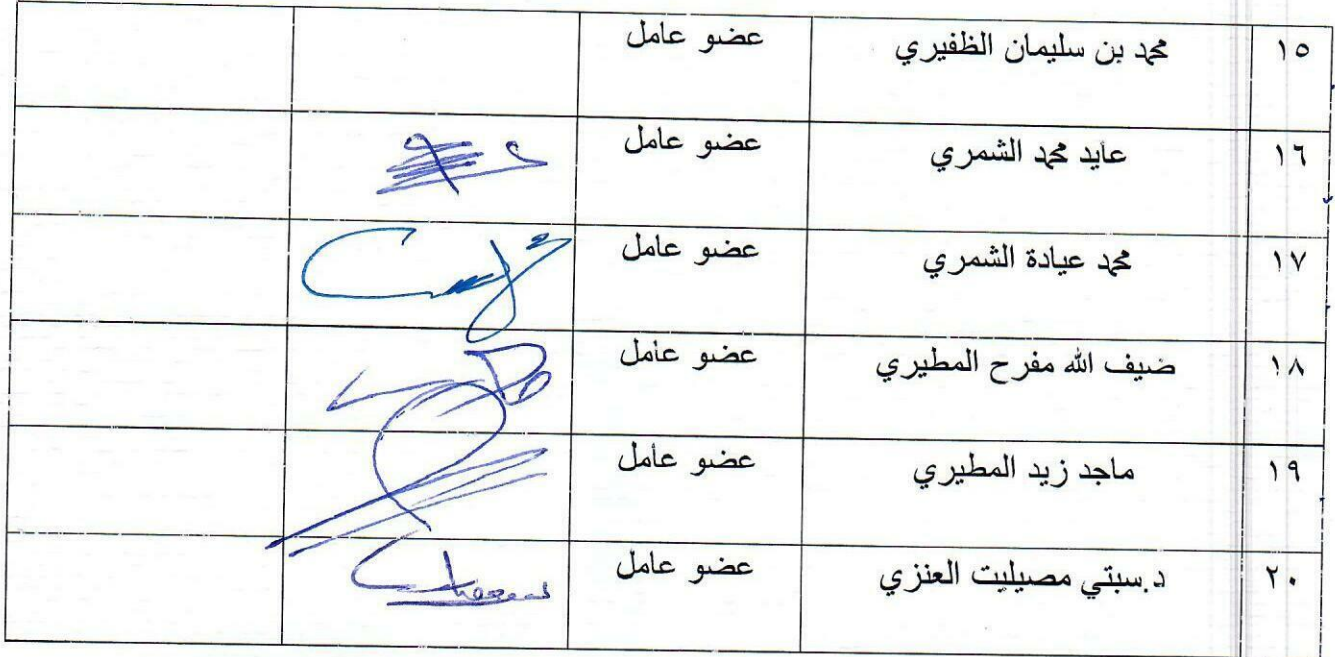 ١٥ محمد بن سليمان الظفيري عضو عامل
١٦ عايد محمد الشمري عضو عامل
١٧ محمد عيادة الشمري عضو عامل
١٨ ضيف الله مفرح المطيري عضو عامل
١٩ ماجد زيد المطيري عضو عامل
٢٠ د.سبتي مصيليت العنزي عضو عامل